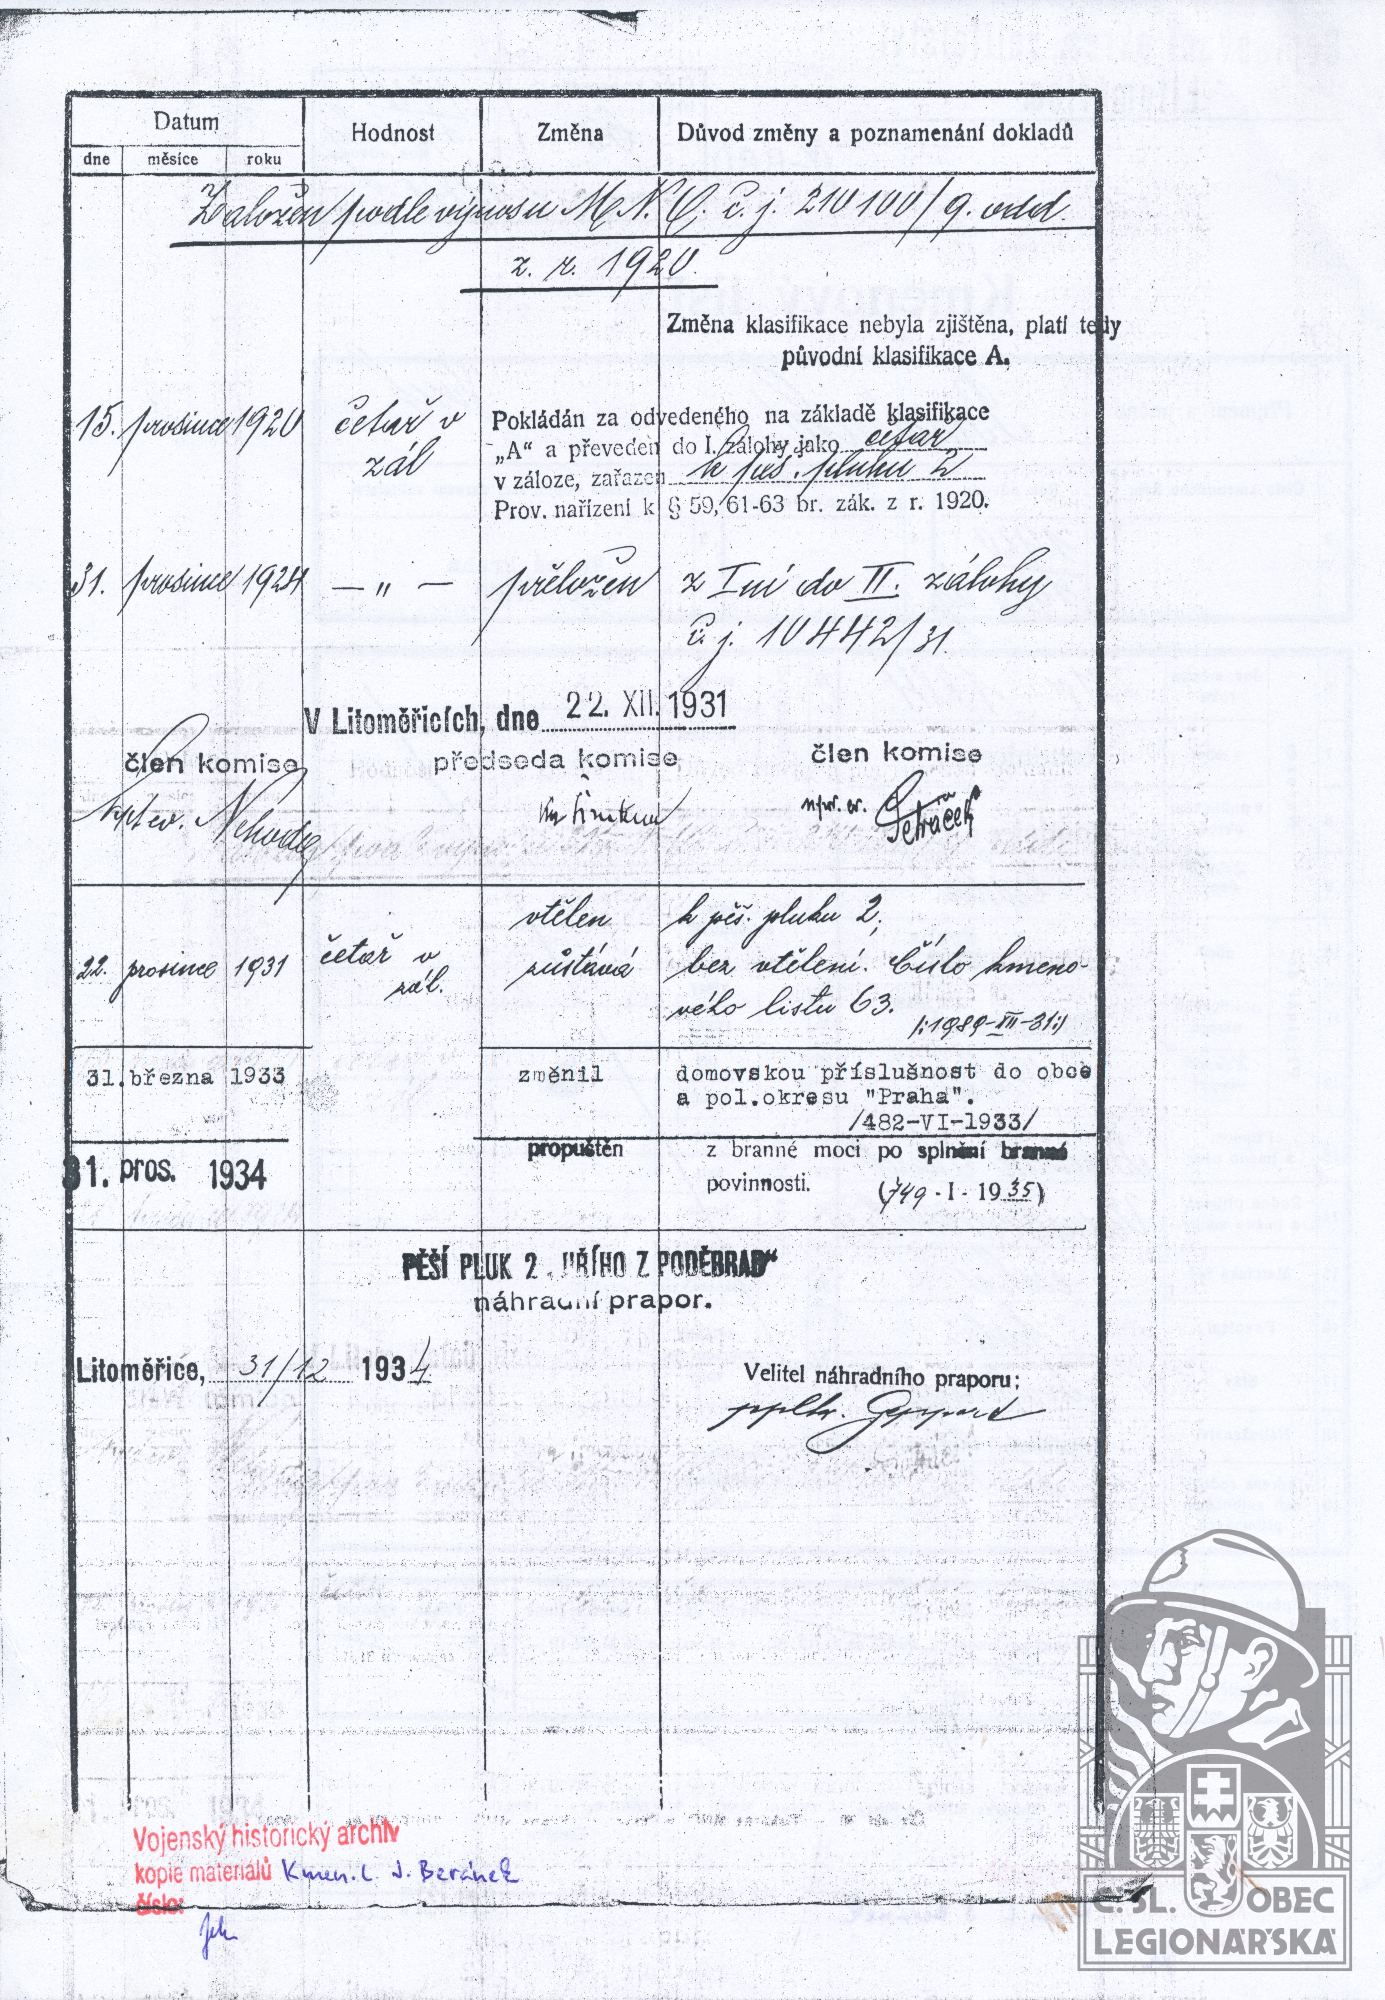 Datum Hodnost Změna Důvod změny a poznamenání dokladů
dne měsíce roku
Založen podle výnosu M.N.O. č.j. 210100/9. odd.
z. r. 1920.
Změna klasifikace nebyla zjištěna, platí tedy
původní klasifikace A.
15. prosince 1920 četař v zál
Pokládán za odvedeného na základě klasifikace
„A“ a převeden do I. zálohy jako četař
v záloze, zařazen k pěš. pluku 2
Prov. nařízení k § 59, 61-63 br. zák. z r. 1920.
31. prosince 1924 — „ — přeložen z Iní do II. zálohy
č. j. 10442/31.
V Litoměřicích, dne 22. XII. 1931
člen komise předseda komise člen komise
Petráček
vtělen k pěš. pluku 2,
22. prosince 1931 četař v zál. zůstává bez vtělení. Číslo kmeno-
vého listu 63.
/:1989-XII-31:/
31.března 1933 změnil domovskou příslušnost do obce
a pol.okresu "Praha".
/482-VI-1933/
31. pros. 1934 propuštěn z branné moci po splnění branné
povinnosti. (749 - I - 1935)
PĚŠÍ PLUK 2 „JIŘÍHO Z PODĚBRAD“
náhradní prapor.
Litoměřice, 31/12 1934
Velitel náhradního praporu:
pplk. Geppert
Vojenský historický archiv
kopie materiálů Kmen. l. J. Beránek
číslo:
Č. SL. OBEC
LEGIONÁŘSKÁ